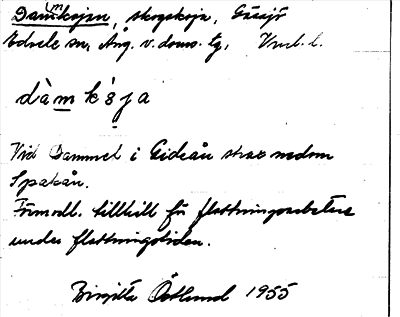 Dam(m)kojan, skogskoja, Gåsjö
Edsele sn, Ång. v. doms. tg, Vrml. l.
dàmkòja
Vid Dammet i Gideån strax nedom
Spakån.
Förmodl. tillhåll för flottningsarbetare
under flottningstiden.
Birgitta Östlund 1955